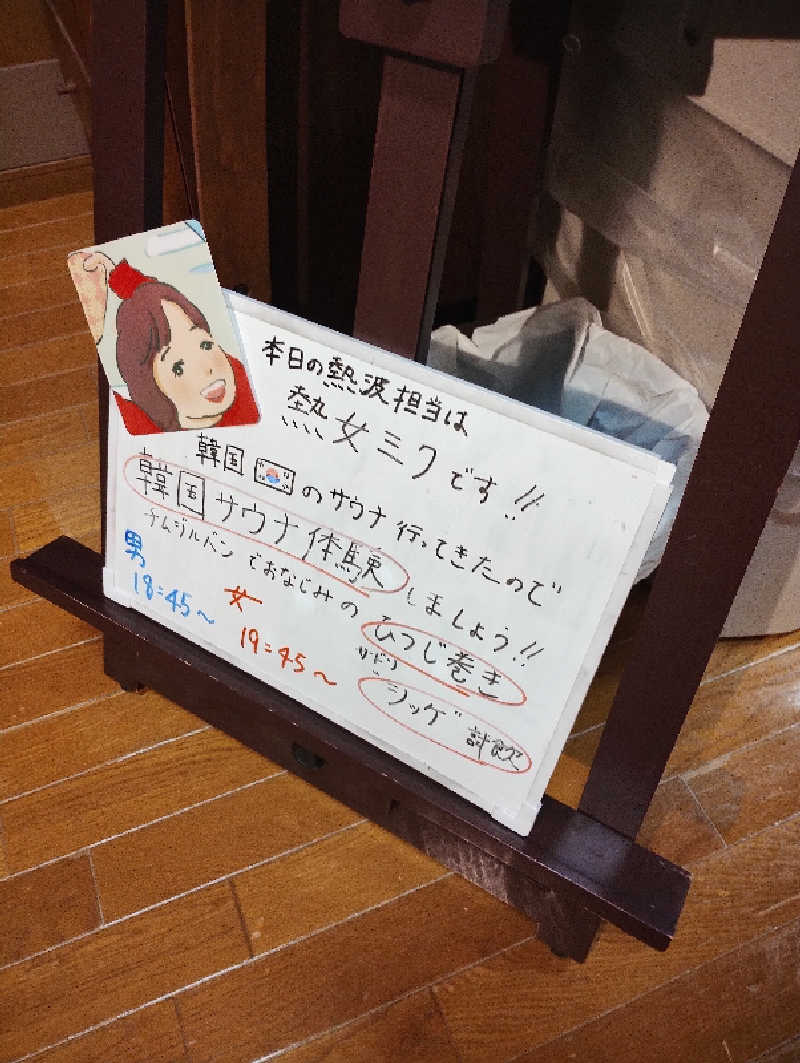 本日の熱波担当は
熱女ミクです!!
韓国🇰🇷のサウナ行ってきたので
韓国サウナ体験しましょう!!
チムジルバンでおなじみのひつじ巻き
シッゲ試飲
男
18:45〜
女
19:45〜